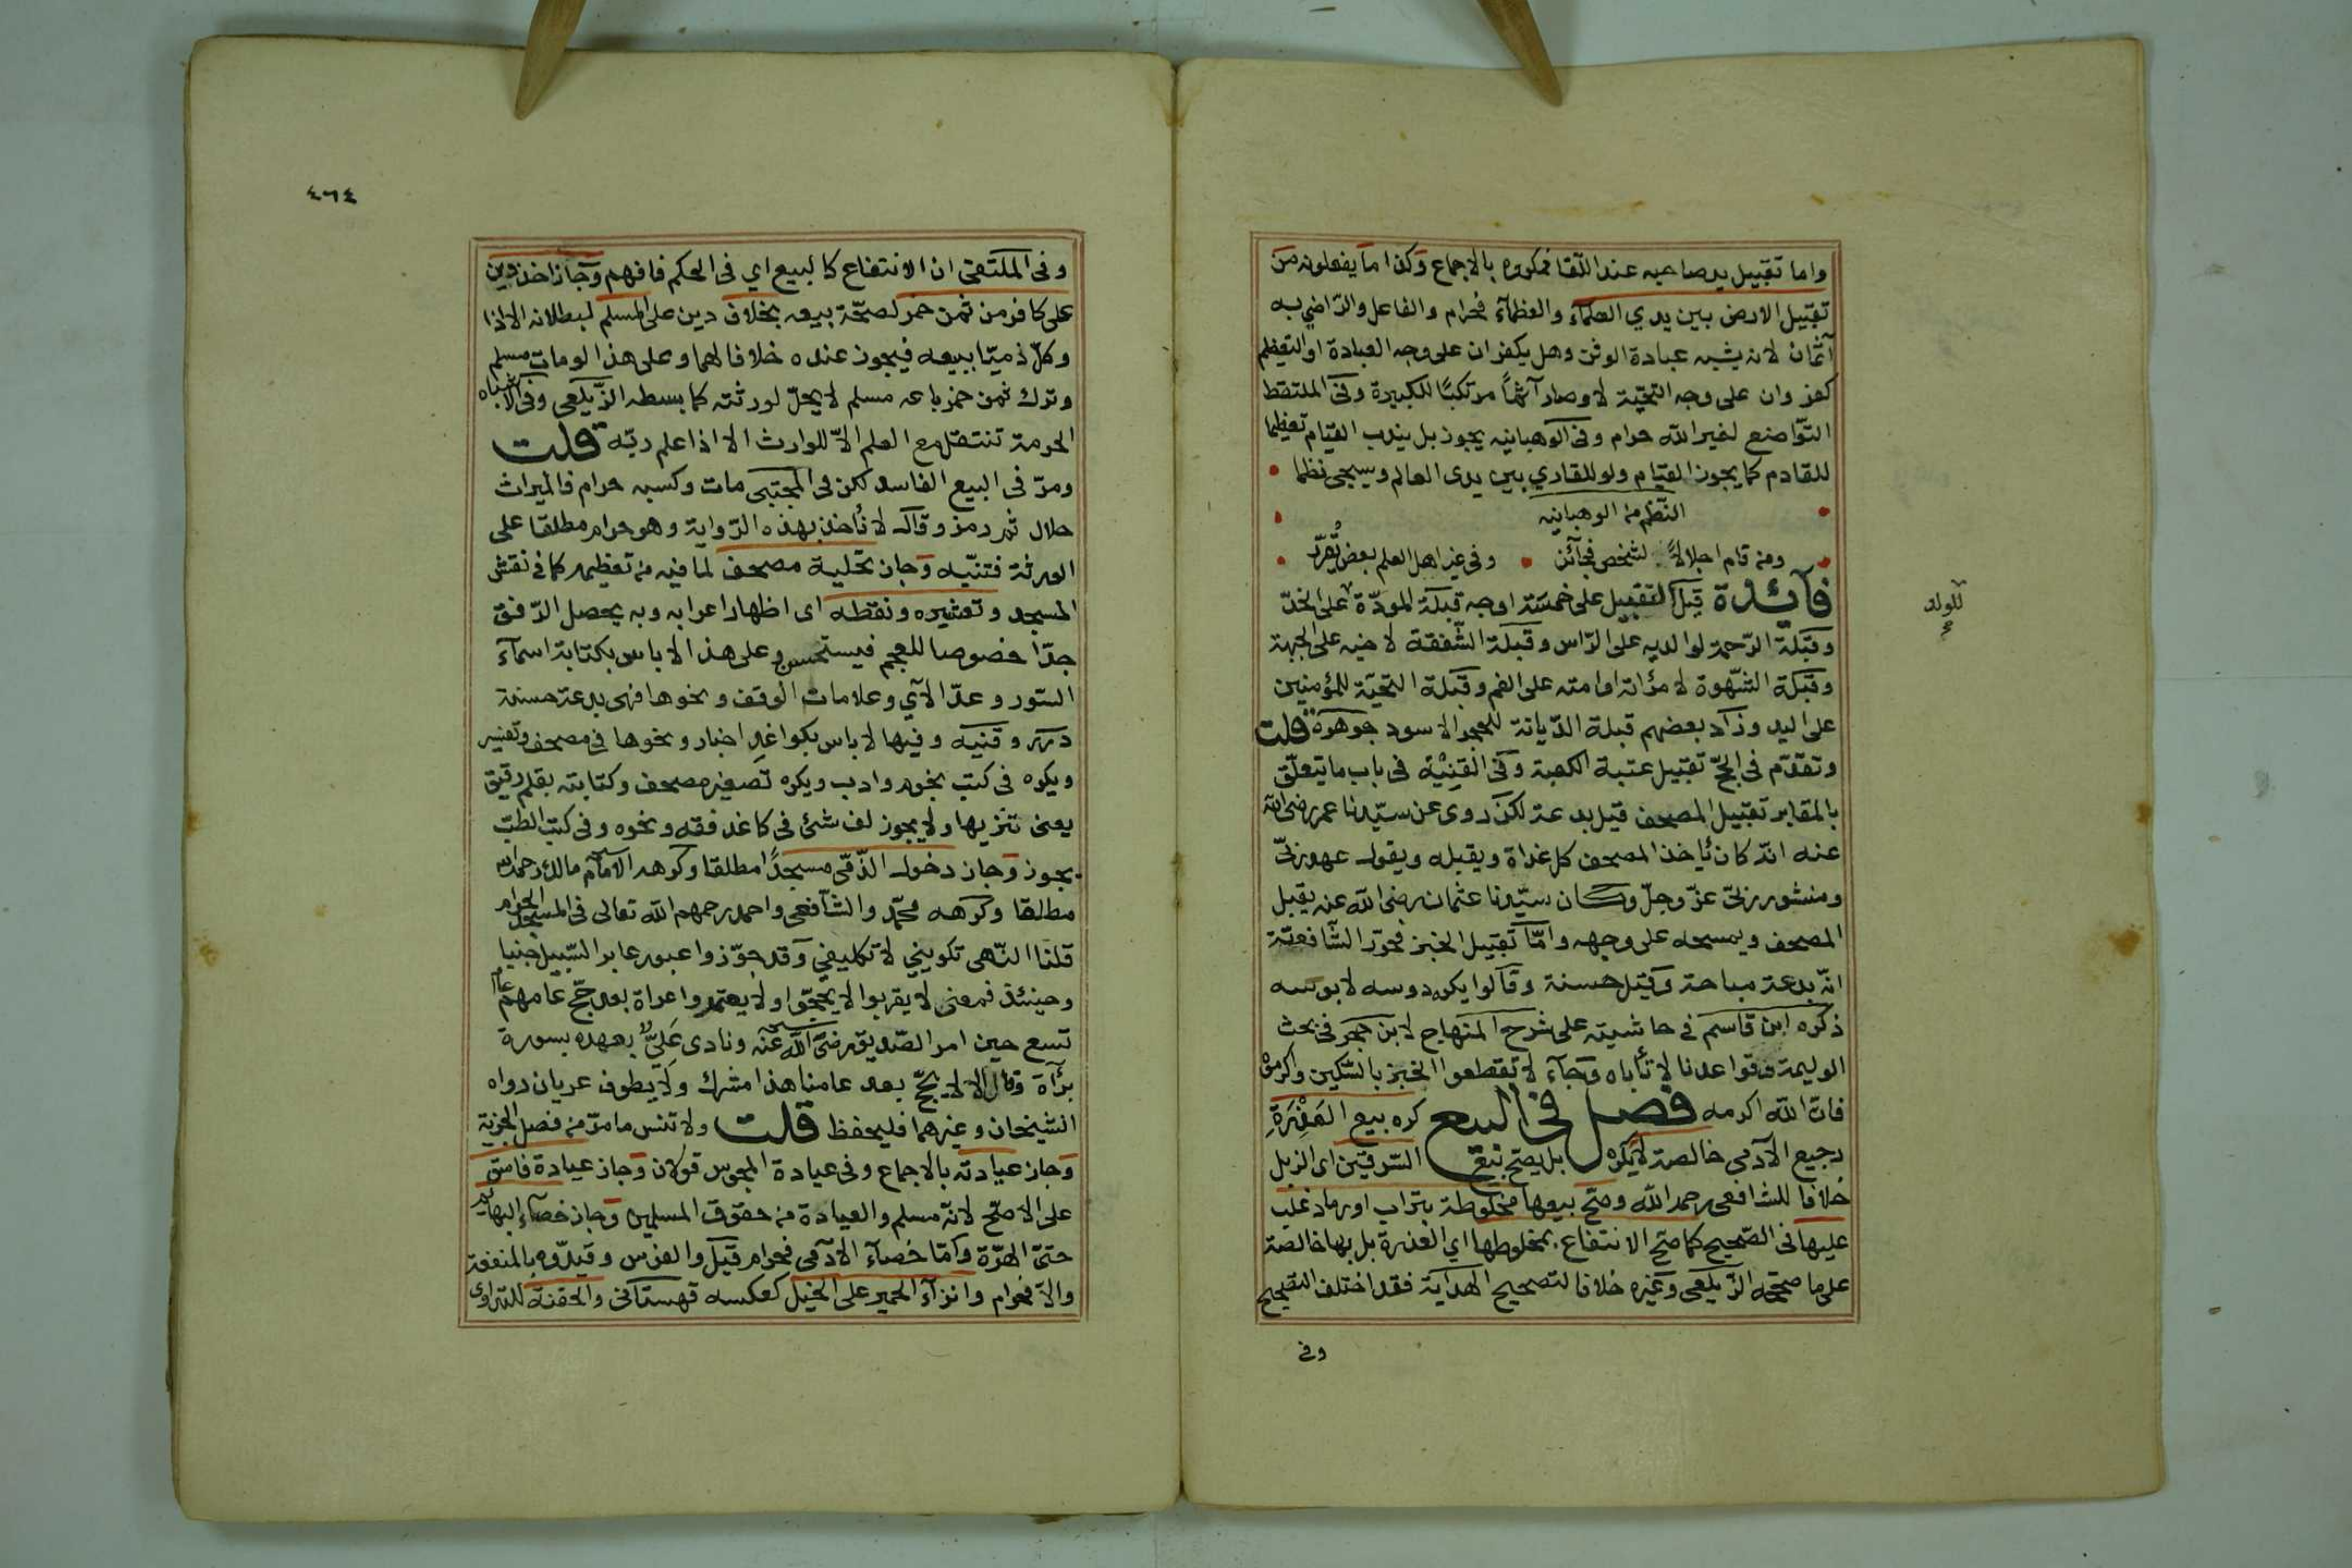 واما تقبيل يد صاحبه عند اللقا فمكروه بالاجماع وكذا ما يفعلونه من
تقبيل الارض بين يدي العلمآء والعظمآء فحرام والفاعل والراضي به
آثمان لانه يشبه عبادة الوثن وهل يكفران على وجه العبادة او التعظيم
كفر وان على وجه التحية لا وصار آثمًا مرتكبًا للكبيرة وفى الملتقط
التواضع لغير الله حرام وفى الوهبانيه يجوز بل يندب القيام تعظيما
للقادم كما يجوز القيام ولو للقاري بين يدى العالم وسيجى نظما
النظم من الوهبانيه
ومن قام اجلالاً لشخص فجآئز وفى غير اهل العلم بعض يقرّر
فآئدة قيل التقبيل على خمسة اوجه قبلة المودّة على الخدّ
للولد
وقبلة الرّحمة لوالديه على الرّاس وقبلة الشّفقة لاخيه على الجبهة
وقبلة الشّهوة لامرأته او امته على الفم وقبلة التحيّة للمؤمنين
على اليد وزاد بعضهم قبلة الدّيانة للحجر الاسود جوهرة قلت
وتقدّم فى الحجّ تقبيل عتبة الكعبة وفى القنية فى باب ما يتعلّق
بالمقابر تقبيل المصحف قيل بدعة لكن روى عن سيّدنا عمر رضى الله
عنه انّه كان يأخذ المصحف كل غداة ويقبله ويقول عهد ربّى
ومنشور ربّى عزّ وجلّ وكان سيّدنا عثمان رضى الله عنه يقبل
المصحف ويمسحه على وجهه وامّا تقبيل الخبز فجوّز الشّافعيّة
انّه بدعة مباحة وقيل حسنة وقالوا يكره دوسه لا بوسه
ذكره ابن قاسم فى حاشيته على شرح المنهاج لابن حجر فى بحث
الوليمة وقواعدنا لا تأباه وجآء لا تقطعوا الخبز بالسّكين واكرموه
فانّ الله اكرمه فصل فى البيع كره بيع العَذِرَةِ
رجيع الآدمى خالصة لا يكره بل يصح بيع السّرقين اى الزبل
خلافا للشافعى رحمه الله وصحّ بيعها مخلوطة بتراب او رماد غلب
عليها فى الصّحيح كما صحّ الانتفاع بمخلوطها اي العذرة بل بها خالصة
على ما صحّحه الزّيلعى وغيره خلافا لتصحيح الهداية فقد اختلف التصحيح
وفى
٤٦٤
وفى الملتقى ان الانتفاع كالبيع اي فى الحكم فافهم وجاز اخذ دين
على كافر من ثمن خمر لصحّة بيعه بخلاف دين على المسلم لبطلانه الا اذا
وكلّ ذميّا ببيعه فيجوز عنده خلافا لهما وعلى هذا لو مات مسلم
وترك ثمن خمر باعه مسلم لا يحلّ لورثته كما بسطه الزّيلعى وفى الاشباه
الحرمة تنتقل مع العلم الاّ للوارث الا اذا علم ربّه قلت
ومرّ فى البيع الفاسد لكن فى المجتبى مات وكسبه حرام فالميراث
حلال ثم رمز وقال لا نأخذ بهذه الرّواية وهو حرام مطلقا على
الورثة فتنبّه وجاز تحلية مصحف لما فيه من تعظيمه كما فى نقش
المسجد وتعشيره ونقطه اى اظهار اعرابه وبه يحصل الرّفق
جدّا خصوصا للعجم فيستحسن وعلى هذا لا باس بكتابة اسمآء
السّور وعدّ الآي وعلامات الوقف ونحوها فهى بدعة حسنة
درر وقنيه وفيها لا باس بكواغد اخبار ونحوها فى مصحف وتفسير
ويكره فى كتب نجوم وادب ويكره تصغير مصحف وكتابته بقلم رقيق
يعنى تنزيها ولا يجوز لف شئ فى كاغد فقه ونحوه وفى كتب الطبّ
يجوز وجاز دخول الذّمّى مسجدًا مطلقا وكرهه الامام مالك رحمه الله
مطلقا وكرهه محمّد والشّافعى واحمد رحمهم الله تعالى فى المسجد الحرام
قلنا النّهى تكوينيّ لا تكليفيّ وقد جوّزوا عبور عابر السّبيل جنبا
وحينئذ فمعنى لا يقربوا لا يحجّوا ولا يعتمروا عراة بعد حجّ عامهم عام
تسع حين امر الصّديق رضى الله عنه ونادى عَلِيٌّ بهذه بسورة
برآة وقال الا لا يحجّ بعد عامنا هذا مشرك ولا يطوف عريان رواه
الشيخان وغيرهما فليحفظ قلت ولا تنس ما مرّ من فصل الجزية
وجاز عيادته بالاجماع وفى عيادة المجوس قولان وجاز عيادة فاسق
على الاصحّ لانّه مسلم والعيادة من حقوق المسلمين وجاز خصآء البهايم
حتىّ الهرّة وامّا خصآء الآدمى فحرام قيل والفرس وقيدّوه بالمنفعة
والاّ فحرام وانزآء الحمير على الخيل كعكسه قهستانى والحقنة للتداوى